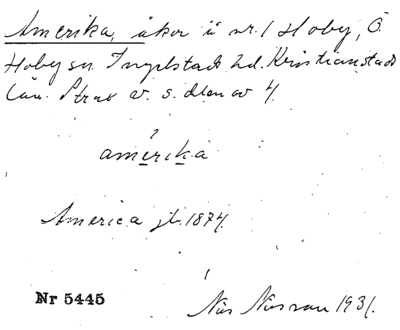 Amerika, åker å nr. 1 Hoby, Ö.
Hoby sn. Ingelstads hd. Kristianstads
län. Strax v. s. delen av 4.
amerika
America jb. 1874.
Nr 5445
Nils 1931.